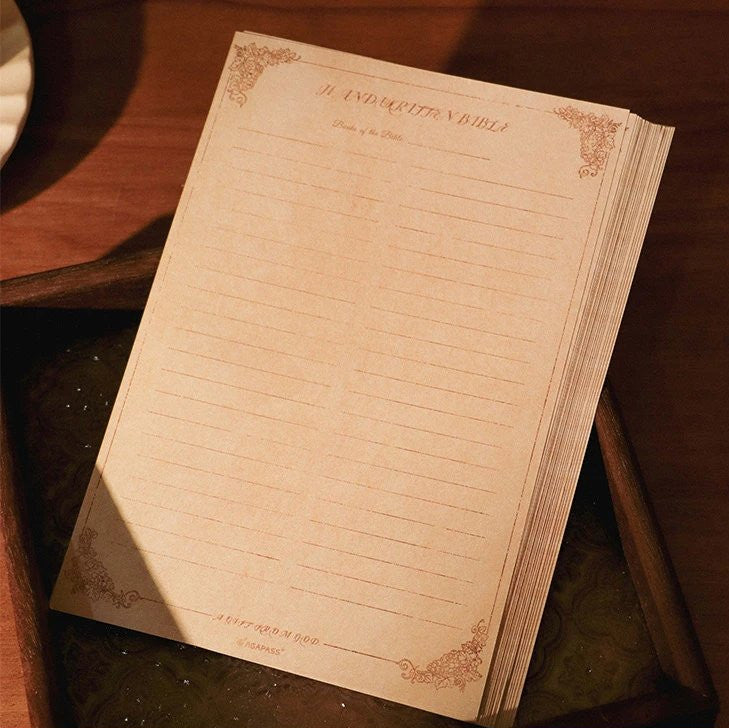 HANDWRITTEN BIBLE
Books of the Bible
A GIFT FROM GOD
AGAPASS